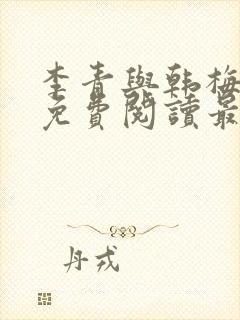 李青與韩梅
免费閱讀最
丹戎